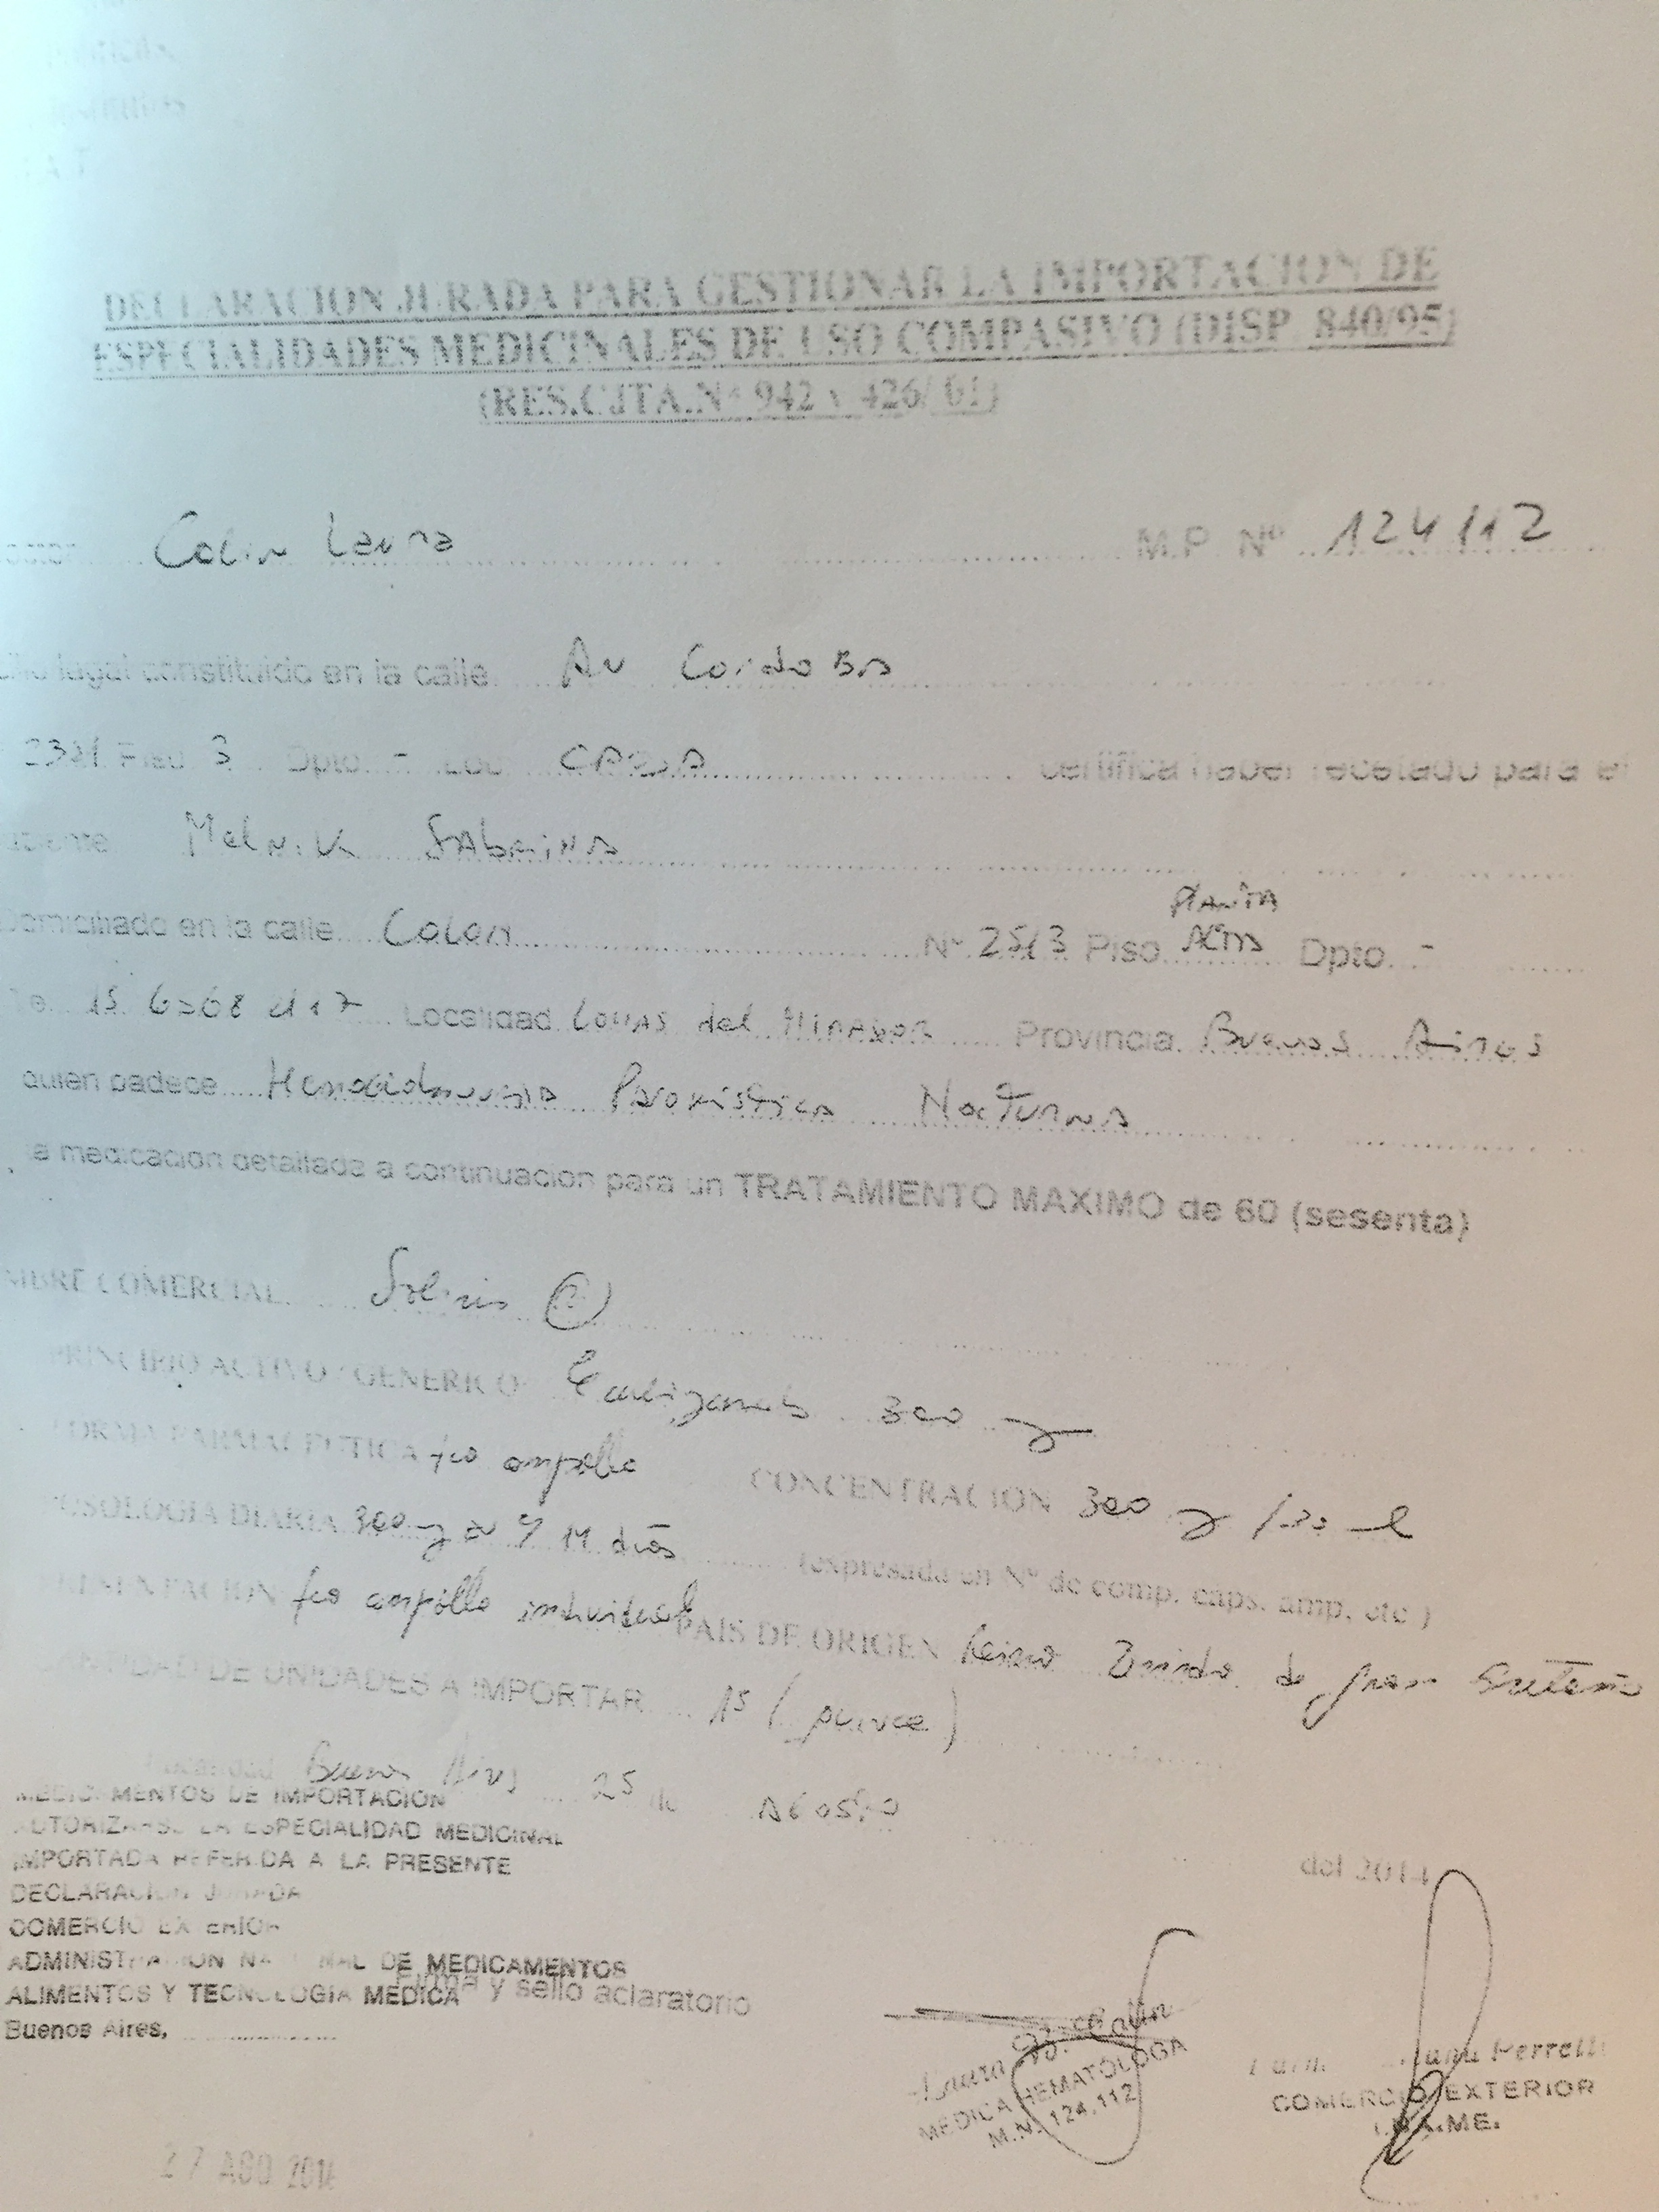 DECLARACION JURADA PARA GESTIONAR LA IMPORTACION DE
ESPECIALIDADES MEDICINALES DE USO COMPASIVO (DISP. 840/95)
(RES.CJTA.Nº 942 y 426/ 01)
Colin Laura M.P. Nº 124112
legal constituido en la calle Av Cordoba
Piso 3 Dpto. - Loc. CABA certifica haber recetado para el
Melnik Sabrina
Domiciliado en la calle Colon Nº 2513 Piso Planta Alta Dpto. -
15 6068 Localidad Lomas del Mirador Provincia Buenos Aires
quien padece Hemoglobinuria Paroxistica Nocturna
la medicacion detallada a continuacion para un TRATAMIENTO MAXIMO de 60 (sesenta)
NOMBRE COMERCIAL Soliris ®
PRINCIPIO ACTIVO / GENERICO Eculizumab 300 mg
FORMA FARMACEUTICA fco ampolla CONCENTRACION 300 mg / 30 ml
POSOLOGIA DIARIA 300 mg días (expresada en Nº de comp. caps. amp. etc )
PRESENTACION fco ampolla individual PAIS DE ORIGEN Reino Unido de Gran Bretaña
CANTIDAD DE UNIDADES A IMPORTAR 15 ( quince )
Localidad Buenos Aires 25 de Agosto del 2014
MEDICAMENTOS DE IMPORTACION
AUTORIZARSE LA ESPECIALIDAD MEDICINAL
IMPORTADA REFERIDA A LA PRESENTE
DECLARACION JURADA
COMERCIO EXTERIOR
ADMINISTRACION NACIONAL DE MEDICAMENTOS
ALIMENTOS Y TECNOLOGIA MEDICA
Firma y sello aclaratorio
Buenos Aires,
Laura Colin
MEDICA HEMATÓLOGA
M.N. 124.112
Perrelli
COMERCIO EXTERIOR
I.NA.ME.
27 AGO 2014